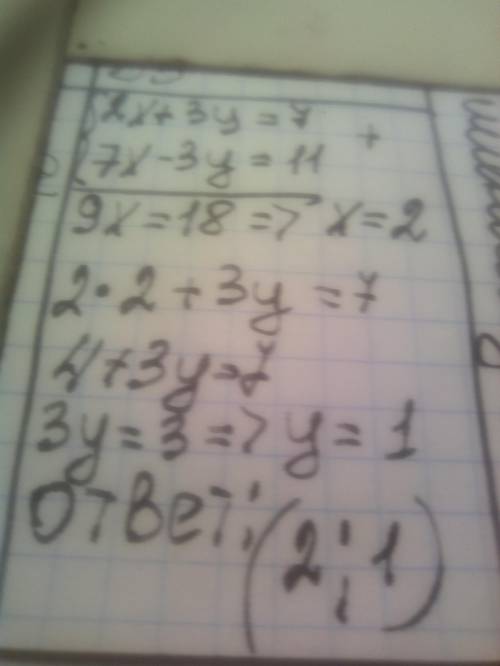 {2x+3y=7 +
{7x-3y=11
9x=18=> x=2
2·2+3y=7
4+3y=7
3y=3=>y=1
Ответ: (2;1)